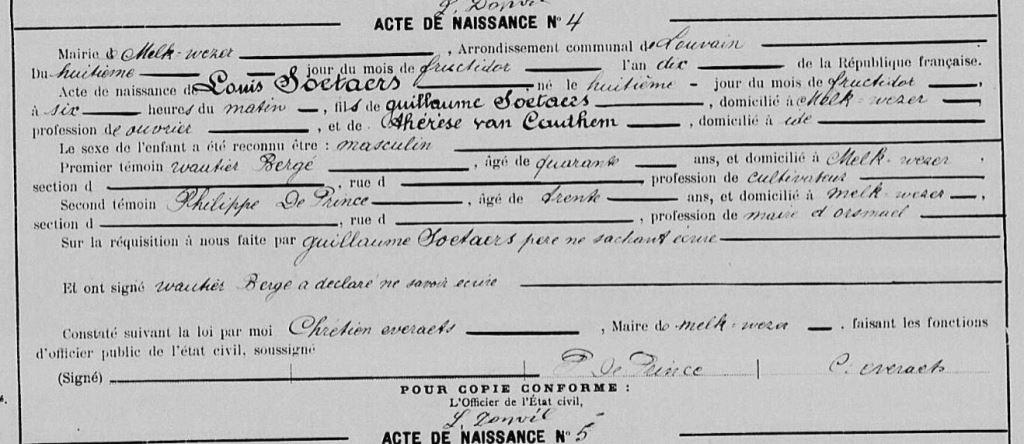 ACTE DE NAISSANCE N° 4
Mairie de Melk-wezer, Arrondissement communal de Louvain
Du huitième jour du mois de fructidor l'an dix de la République française.
Acte de naissance de Louis Soetaers né le huitième jour du mois de fructidor,
à six heures du matin, fils de guillaume Soetaers, domicilié à Melk-wezer,
profession de ouvrier, et de thérèse van Cauthem, domicilié à
Le sexe de l'enfant a été reconnu être : masculin
Premier témoin wautier Bergé, âgé de quarante ans, et domicilié à Melk-wezer,
section d , rue d profession de cultivateur
Second témoin Philippe De Prince, âgé de trente ans, et domicilié à melk-wezer,
section d , rue d , profession de maire d orsmael
Sur la réquisition à nous faite par guillaume Soetaers pere ne sachant écrire
Et ont signé wautier Berge a declaré ne savoir ecrire
Constaté suivant la loi par moi Chrétien everaets, Maire de melk-wezer, faisant les fonctions
d'officier public de l'état civil, soussigné
(Signé) P de Prince C. everaets
POUR COPIE CONFORME :
L'Officier de l'État civil,
ACTE DE NAISSANCE N° 5